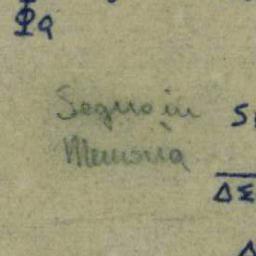 Φq
Segno in
Memoria
S
ΔΣ
Δ